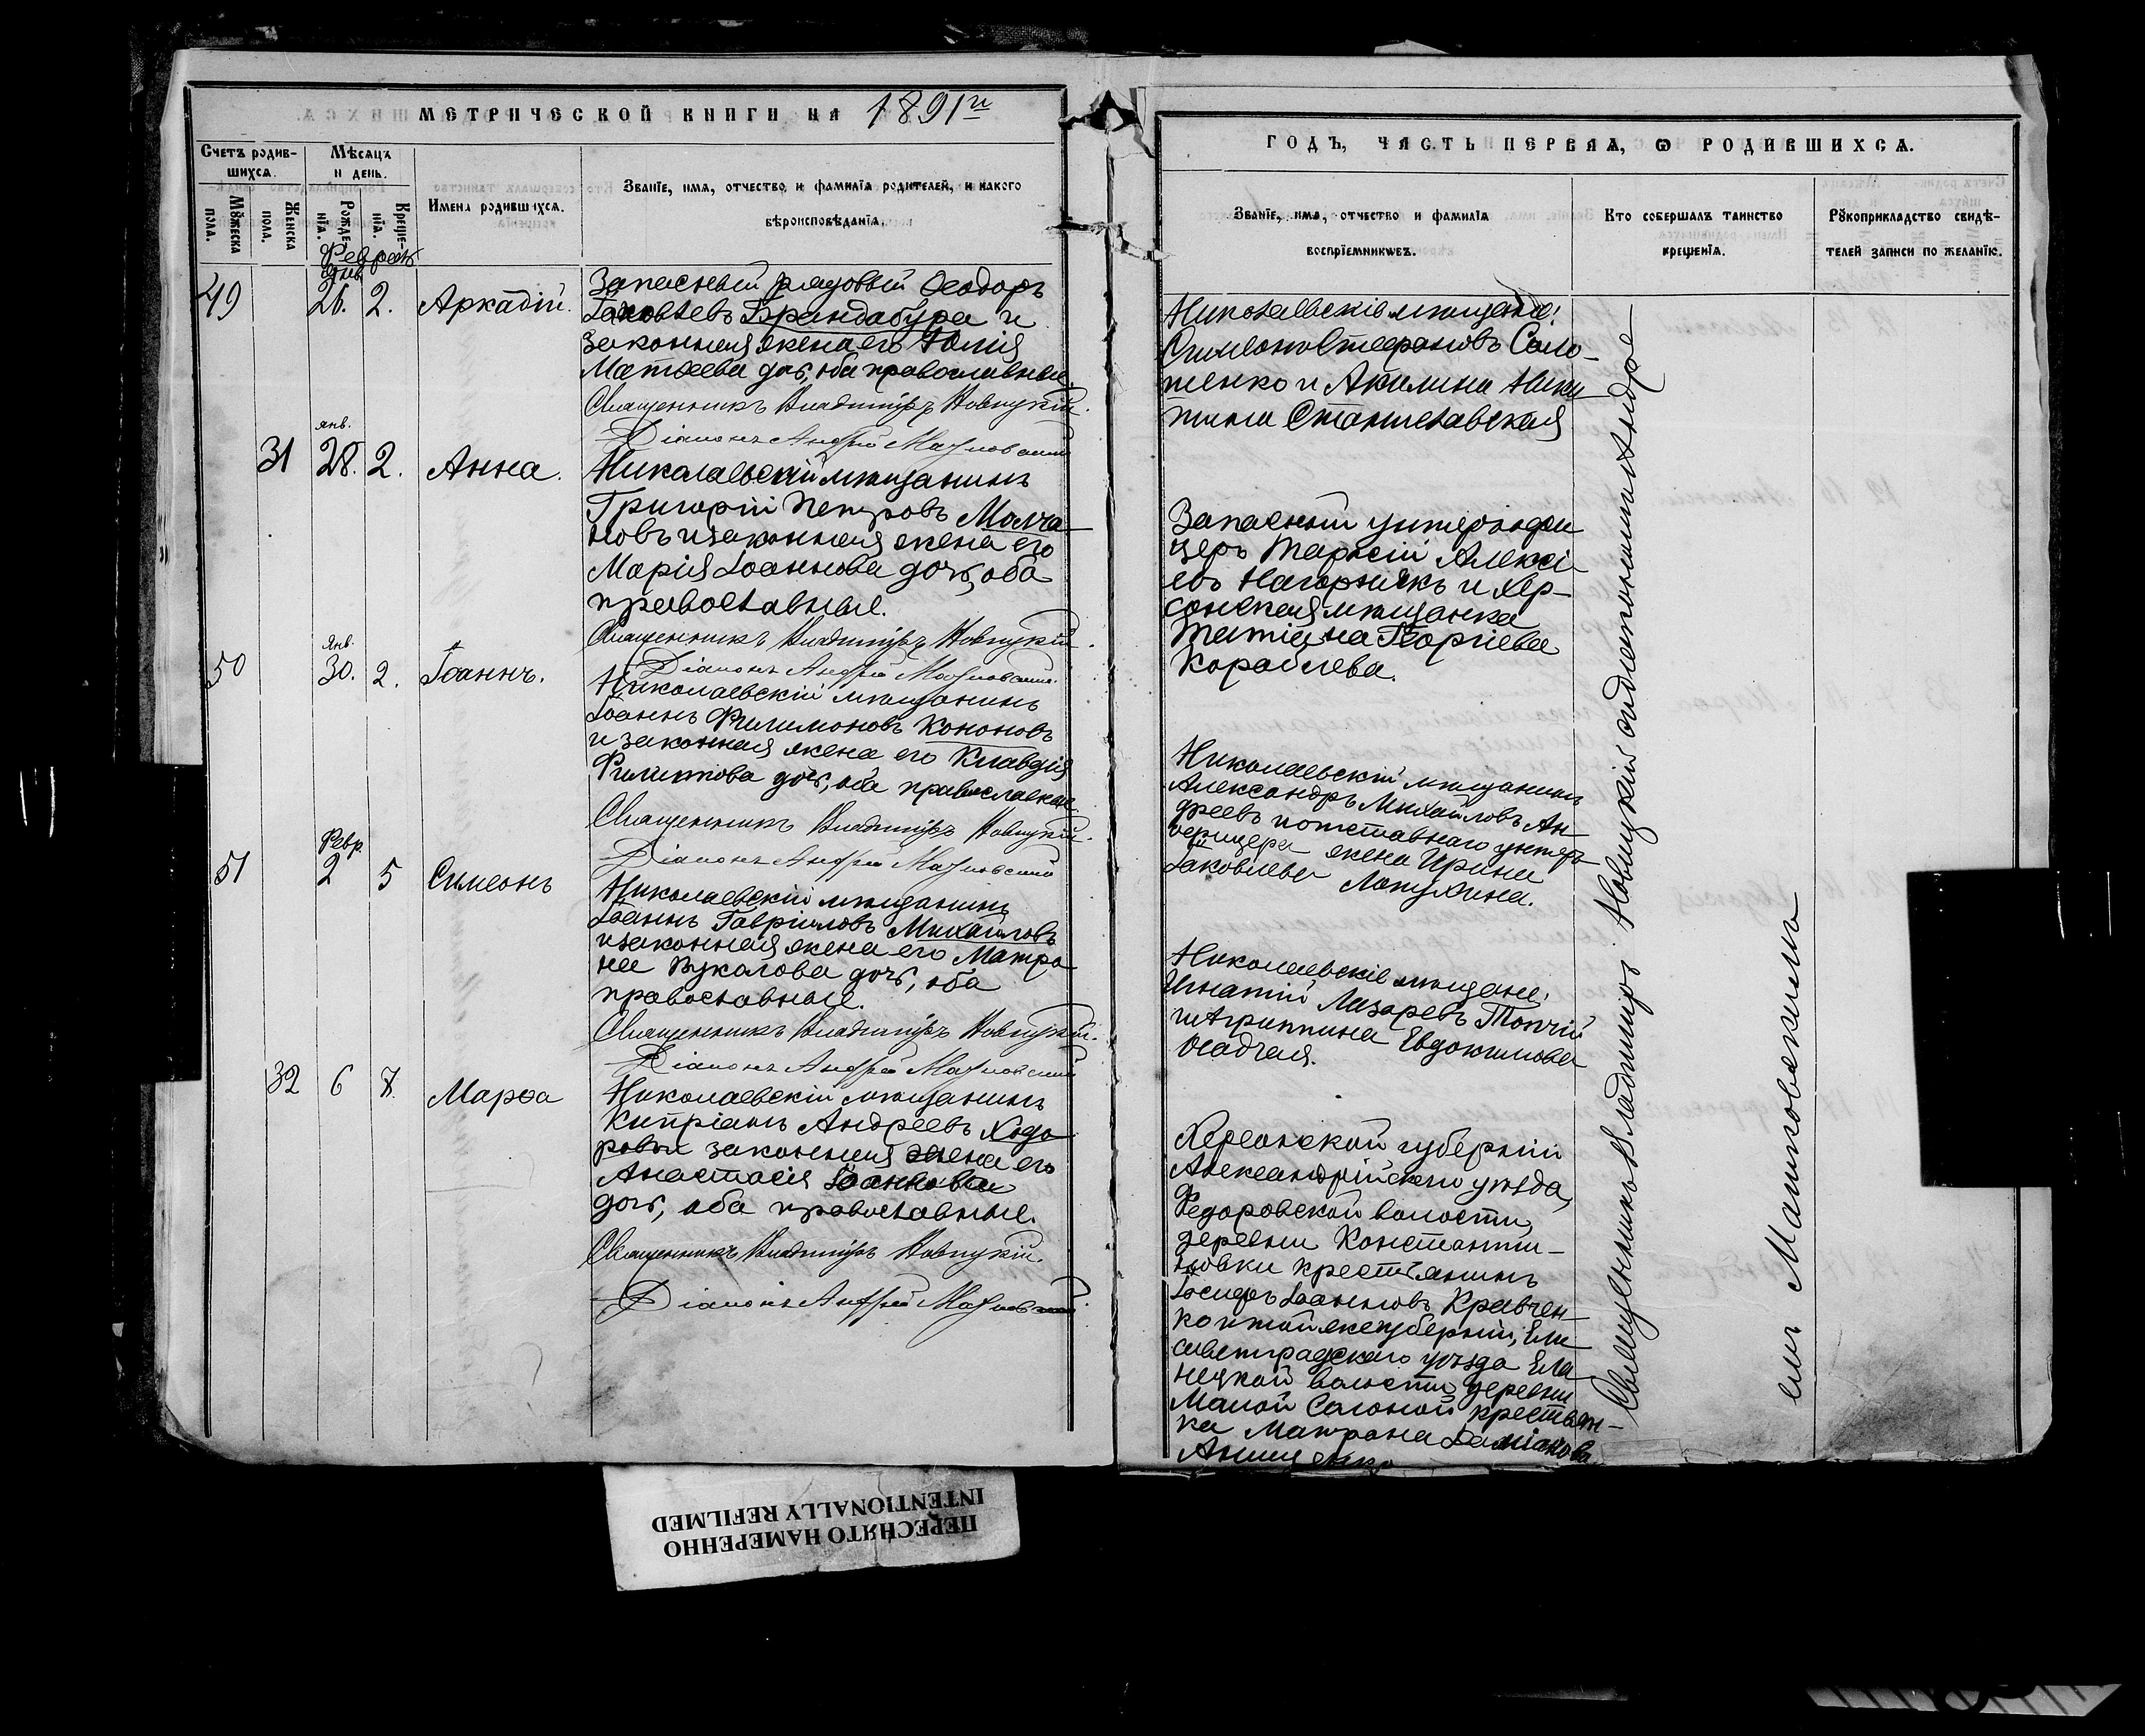 МЕТРИЧЕСКОЙ КНИГИ НА 1891й
Счетъ родив-
шихся.
Мѣсяцъ
и день.
Имена родившихся.
Званіе, имя, отчество и фамилія родителей, и какого
вѣроисповѣданія.
Мужеска
пола.
Женска
пола.
Рожде-
нія.
Креще-
нія.
Февраль
49
Янв.
26. 2. Аркадій.
Запасный рядовый Ѳеодоръ
Іаковлевъ Брандабура и
законная жена его Юлія
Матѳеева дочь, оба православные.
Священникъ Владиміръ Новицкій.
Діаконъ Андрей
31
янв.
28. 2. Анна.
Николаевскій мѣщанинъ
Григорій Петровъ Молча
новъ и законная жена его
Марія Іоаннова дочь, оба
православные.
Священникъ Владиміръ Новицкій.
Діаконъ Андрей
50
Янв.
30. 2. Іоаннъ.
Николаевскій мѣщанинъ
Іоаннъ Филимоновъ Кононовъ
и законная жена его Клавдія
Филиппова дочь, оба православные.
Священникъ Владиміръ Новицкій.
Діаконъ Андрей
51
Февр.
2 5 Симеонъ
Николаевскій мѣщанинъ
Іоаннъ Гавріиловъ Михайловъ
и законная жена его Матро
на Вукалова дочь, оба
православные.
Священникъ Владиміръ Новицкій.
Діаконъ Андрей
32 6 7. Марѳа
Николаевскій мѣщанинъ
Кипріанъ Андреевъ Ходо
ровъ и законная жена его
Анастасія Іоаннова
дочь, оба православные.
Священникъ Владиміръ Новицкій.
Діаконъ Андрей
ГОДЪ, ЧАСТЬ ПЕРВАЯ, Ѡ РОДИВШИХСЯ.
Званіе, имя, отчество и фамилія
воспріемниковъ.
Кто совершалъ таинство
крещенія.
Рукоприкладство свидѣ-
телей записи по желанію.
Николаевскіе мѣщане:
Симеонъ Стефановъ Соло-
тенко и Акилина Ники
тина Станиславская
Запасный унтеръ офи
церъ Тарасій Алексі
евъ Нагорнякъ и Хер-
сонская мѣщанка
Татіана Георгіева
Кораблева.
Николаевскій мѣщанинъ
Александръ Михайловъ Ан-
дреевъ и отставного унтеръ
офицера жена Ирина
Іаковлева Лопухина.
Николаевскіе мѣщане:
Игнатій Лазаревъ Топчій
и Агриппина Евдокимова
Осадчая.
Херсонской губерніи
Александрійскаго уѣзда,
Федоровской волости,
деревни Константи-
новки крестьянинъ
Іосифъ Іоанновъ Кравчен-
ко и той же губерніи, Ели
саветградскаго уѣзда Ела
нецкой волости деревни
Малой Солоной крестьян-
ка Матрона Даміанова
Священникъ Владиміръ Новицкій съ діакономъ Андре-
емъ
ПЕРЕСНЯТО НАМЕРЕННО
INTENTIONALLY REFILMED